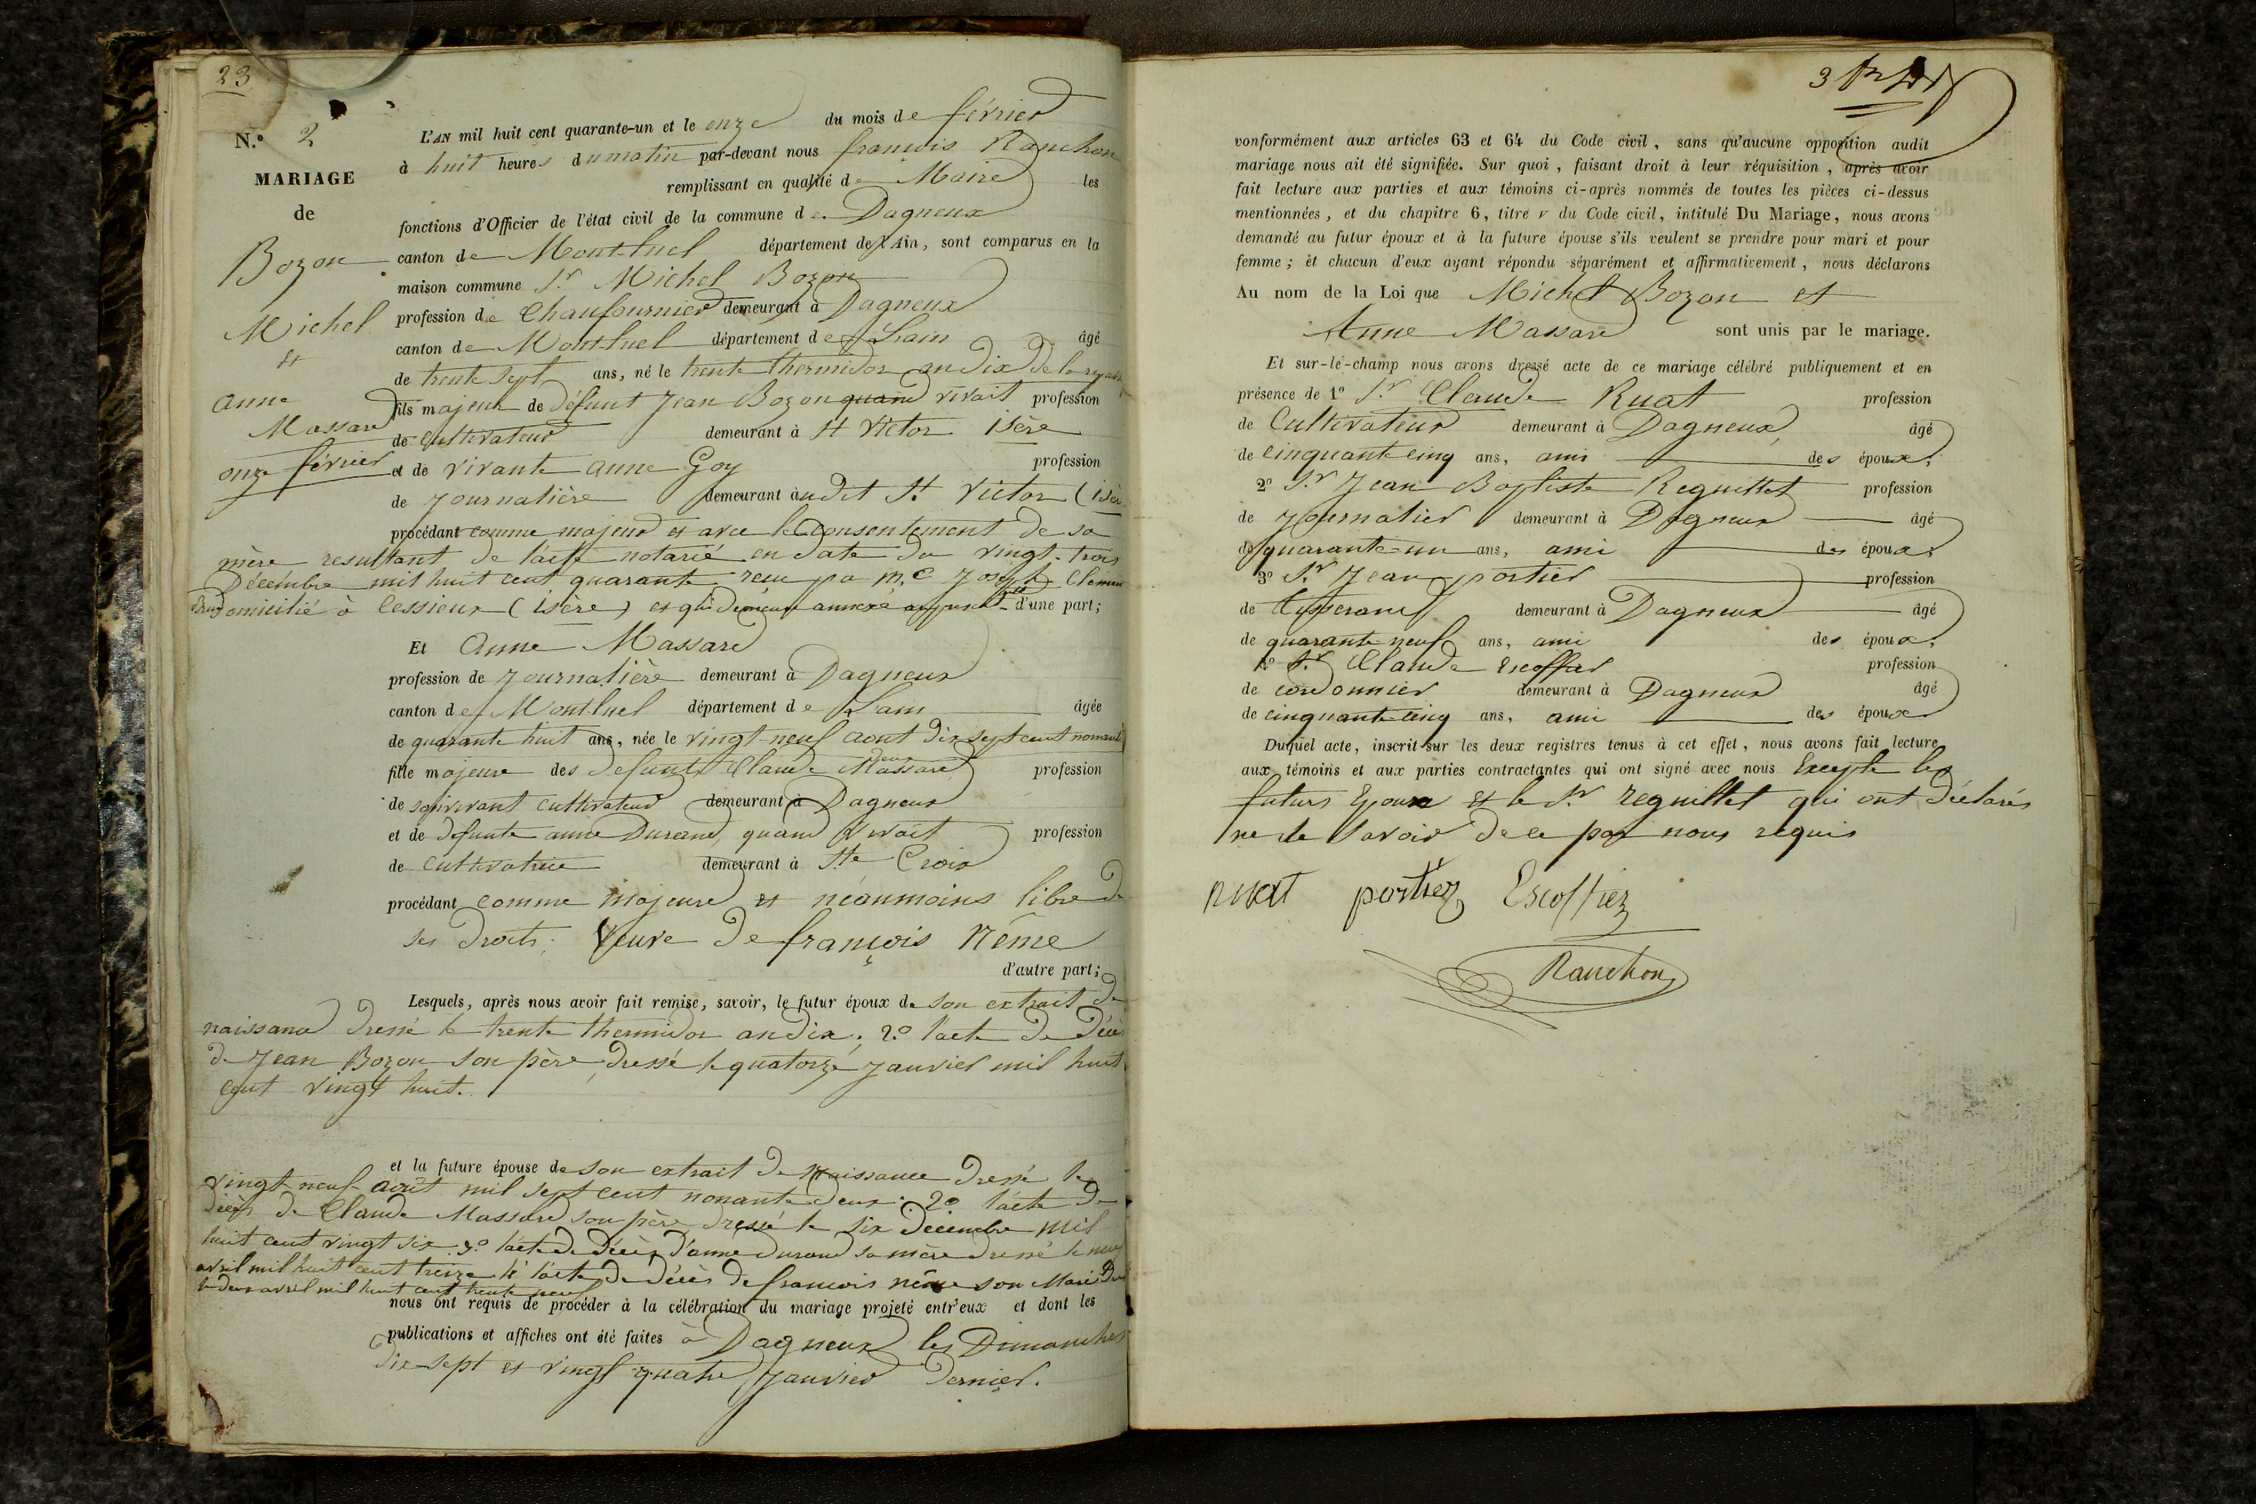 23
N.o 2
MARIAGE
de
Bozon
Michel
et
anne
Massard
onze février
L'AN mil huit cent quarante-un et le onze du mois de février
à huit heures du matin par-devant nous françois Ranchon
remplissant en qualité de Maire les
fonctions d'Officier de l'état civil de la commune de Dagneux
canton de Montluel département de l'Ain, sont comparus en la
maison commune Sr Michel Bozon
profession de Chaufournier demeurant à Dagneux
canton de Montluel département de L'ain âgé
de trente sept ans, né le trente thermidor an dix de la
fils majeur de défunt Jean Bozon quand vivait profession
de Cultivateur demeurant à St Victor isère
et de vivante anne Goy profession
de journalière demeurant audit St Victor (isère
procédant comme majeur et avec le consentement de sa
mère resultant de l'acte notarié en date du vingt-trois
Décembre mil huit cent quarante reçu par m.e Joseph
domicilié à Cessieux (isère) et qui demeure annexé au présent d'une part;
Et Anne Massard
profession de journalière demeurant à Dagneux
canton de Montluel département de L'ain âgée
de quarante huit ans, née le vingt-neuf aout dix sept cent nonante
deux
fille majeure des defunts Claude Massard profession
de son vivant cultivateur demeurant à Dagneux
et de défunte anne Durand, quand vivait profession
de cultivatrice demeurant à Ste Croix
procédant comme majeure et néanmoins libre de
ses droits. Veuve de françois Nême
d'autre part;
Lesquels, après nous avoir fait remise, savoir, le futur époux de son extrait de
naissance dressé le trente thermidor an dix; 2.o l'acte de décès
de Jean Bozon son père dressé le quatorze janvier mil huit
cent vingt huit.
et la future épouse de son extrait de Naissance dressé le
vingt-neuf août mil sept cent nonante deux. 2o l'acte de
décès de Claude Massard son père dressé le six décembre mil
huit cent vingt six 3.o l'acte de décès d'anne durand sa mère dressé le neuf
avril mil huit cent treize 4o l'acte de décès de francois nême son Mari
le deux avril mil huit cent trente neuf
nous ont requis de procéder à la célébration du mariage projeté entr'eux et dont les
publications et affiches ont été faites à Dagneux les Dimanches
dix-sept et vingt-quatre janvier dernier.
3
conformément aux articles 63 et 64 du Code civil, sans qu'aucune opposition audit
mariage nous ait été signifiée. Sur quoi, faisant droit à leur réquisition, après avoir
fait lecture aux parties et aux témoins ci-après nommés de toutes les pièces ci-dessus
mentionnées, et du chapitre 6, titre v du Code civil, intitulé Du Mariage, nous avons
demandé au futur époux et à la future épouse s'ils veulent se prendre pour mari et pour
femme; et chacun d'eux ayant répondu séparément et affirmativement, nous déclarons
Au nom de la Loi que Michel Bozon et
Anne Massard sont unis par le mariage.
Et sur-le-champ nous avons dressé acte de ce mariage célébré publiquement et en
présence de 1o Sr Claude Ruat profession
de Cultivateur demeurant à Dagneux, âgé
de cinquante cinq ans, ami des époux;
2o Sr Jean Baptiste Reguillet profession
de journalier demeurant à Dagneux âgé
de quarante-un ans, ami des époux;
3o Sr Jean portier profession
de tisserand demeurant à Dagneux âgé
de quarante neuf ans, ami des époux;
4o Sr Claude Escoffier profession
de cordonnier demeurant à Dagneux âgé
de cinquante-cinq ans, ami des époux
Duquel acte, inscrit sur les deux registres tenus à cet effet, nous avons fait lecture
aux témoins et aux parties contractantes qui ont signé avec nous Excepté les
futurs Epoux et le Sr reguillet qui ont déclarés
ne le savoir de ce par nous requis
ruat portier Escoffier
Ranchon